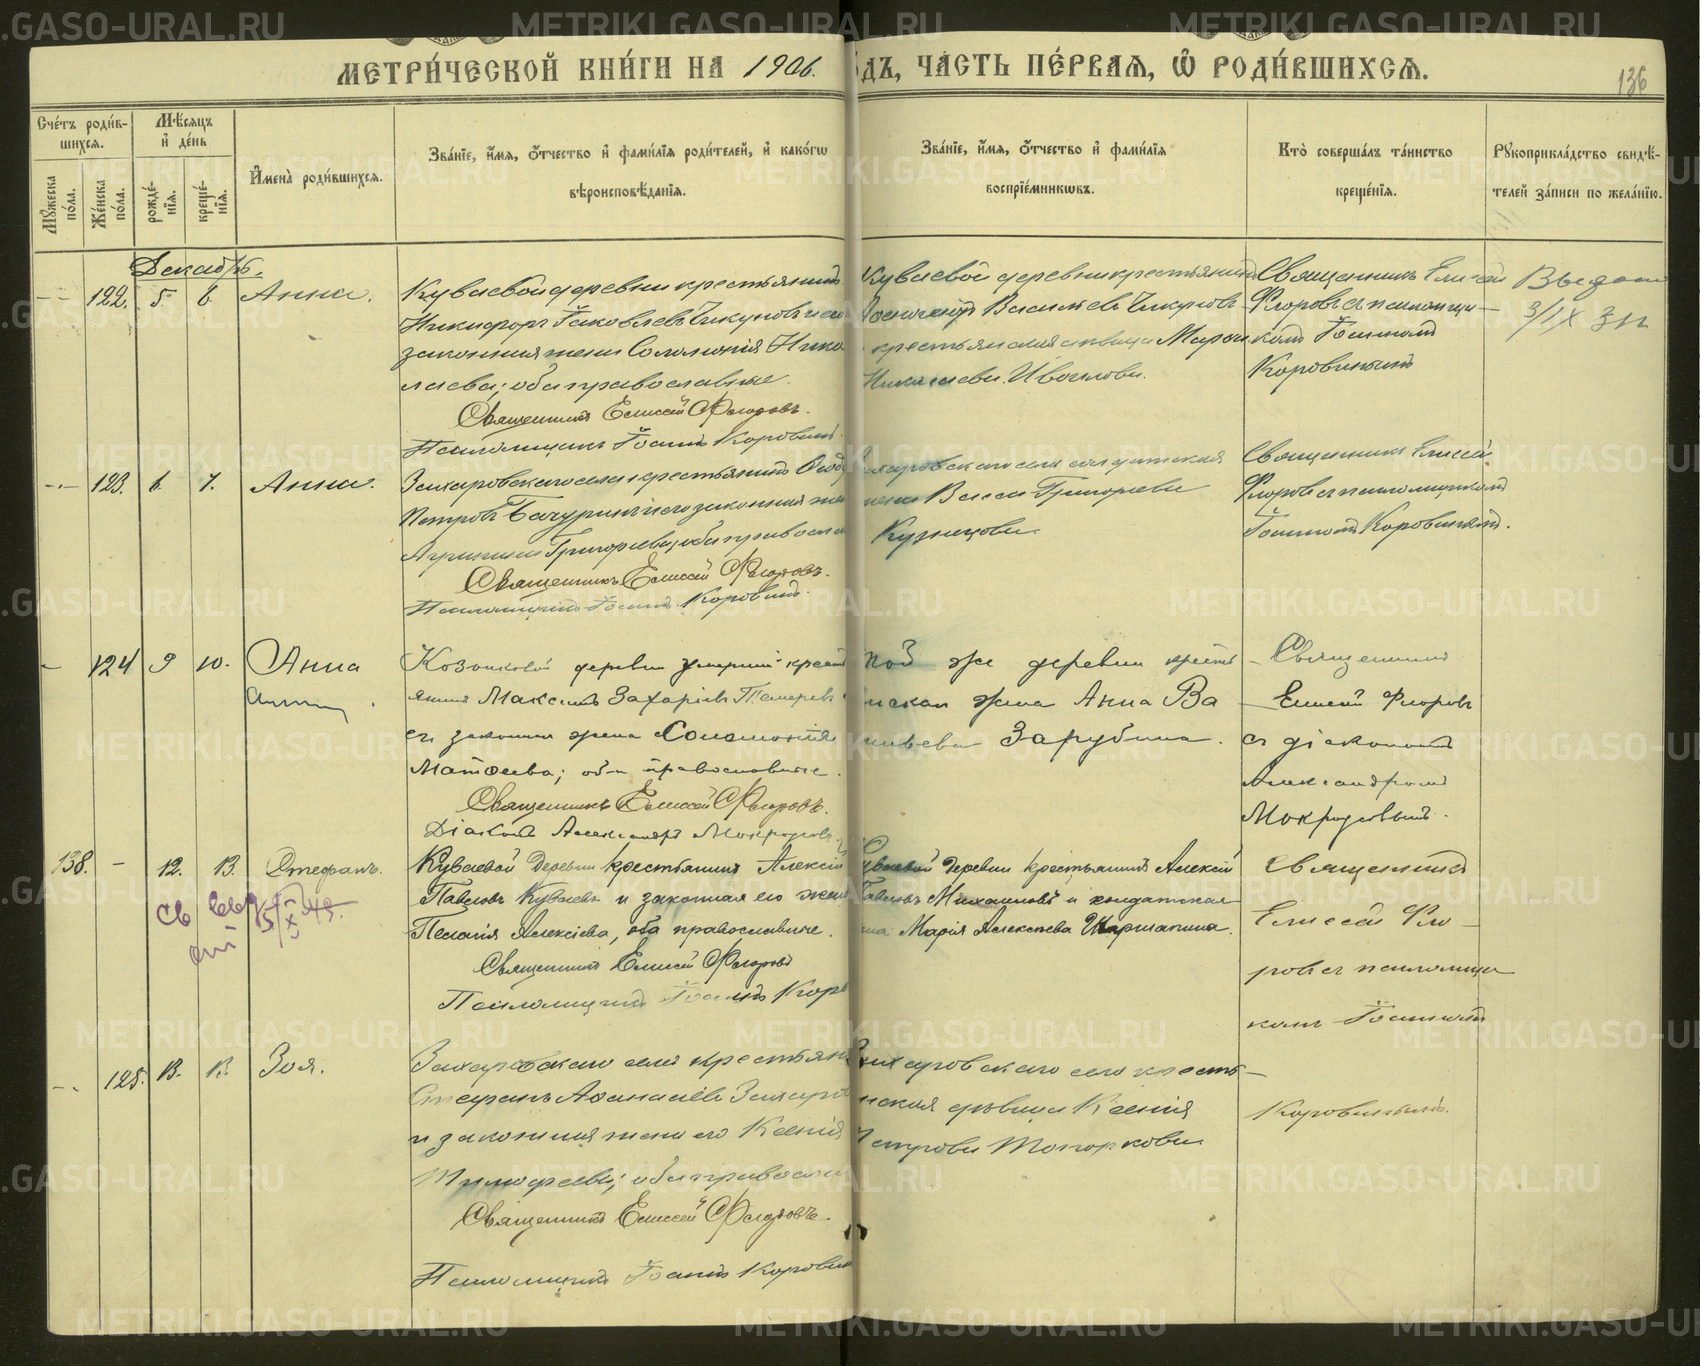 МЕТРИ́ЧЕСКОЙ КНИ́ГИ НА 1906.
ДЪ, ЧА́СТЬ ПЕ́РВАѦ, Ѡ҆ РОДИ́ВШИХСѦ.
136
Сче́тъ роди́в-
шихсѧ.
Мѣ́сѧцъ
и҆ де́нь
Мꙋ́жеска
по́ла.
Же́нска
по́ла.
рожде́-
нїѧ.
креще́-
нїѧ.
И҆мена̀ роди́вшихсѧ.
Зва́нїе, и҆́мѧ, ѻ҆́тчество и҆ фами́лїѧ роди́телей, и҆ како́гѡ
вѣроисповѣ́данїѧ.
Зва́нїе, и҆́мѧ, ѻ҆́тчество и҆ фами́лїѧ
воспрїе́мникѡвъ.
Кто̀ соверша́лъ та́инство
креще́нїѧ.
Рꙋкоприкла́дство свидѣ́-
телей за́писи по жела́нїю.
Декабрь.
122. 5. 6. Анна.
Куваевой деревни крестьянинъ
Никифоръ Іаковлевъ Чикуновъ и его
законная жена Соломонія Нико
лаева; оба православные.
Священникъ Елисей Флоровъ.
Псаломщикъ Іоаннъ Коровинъ.
Куваевой деревни крестьянинъ
Васильевъ Чикуновъ
крестьянская дѣвица Марѳа
Николаева Ивачева.
Священникъ Елисей
Флоровъ съ псаломщи-
комъ Іоанномъ
Коровинымъ
3/IX
123. 6. 7. Анна.
Захаровскаго села крестьянинъ Ѳеод
Петровъ Бачуринъ и его законная же
Агрипина Григорьева; оба правосла
Священникъ Елисей Флоровъ.
Псаломщикъ Іоаннъ Коровинъ.
харовскаго села солдатская
жена Васса Григорьева
Кузнецова
Священникъ Елисей
Флоровъ съ псаломщикомъ
Іоанномъ Коровинымъ.
124 9 10. Анна
Анна
деревни умершій крест
янинъ Максимъ Захаріевъ
его законная жена Соломонія
Матѳеева; оба православные.
Священникъ Елисей Флоровъ.
Діаконъ Александръ Мокроусовъ
той же деревни крестя
нская жена Анна Ва
сильева Зарубина.
Священникъ
Елисей Флоровъ
съ діакономъ
Александромъ
Мокроусовымъ.
138. 12. 13. Стефанъ.
Куваевой деревни крестьянинъ Алексій
Павловъ Куваевъ и законная его жена
Пелагія Алексіева, оба православные.
Священникъ Елисей Флоровъ
Псаломщикъ Іоаннъ Коро
Куваевой деревни крестьянинъ Алексій
Павловъ Михаиловъ и солдатская
Марія Алексѣева Шаршапина.
Священникъ
Елисей Фло-
ровъ съ псаломщи
комъ Іоанномъ
Коровинымъ.
125. 13. 13. Зоя.
Захаровскаго села крестьян
Стефанъ Аѳанасіевъ Захаро
и законная жена его Ксенія
Тимофеева; оба правосла
Священникъ Елисей Флоровъ.
Псаломщикъ Іоаннъ Коровин
Захаровскаго села кресть-
нская дѣвица Ксенія
Петрова Топоркова
METRIKI.GASO-URAL.RU